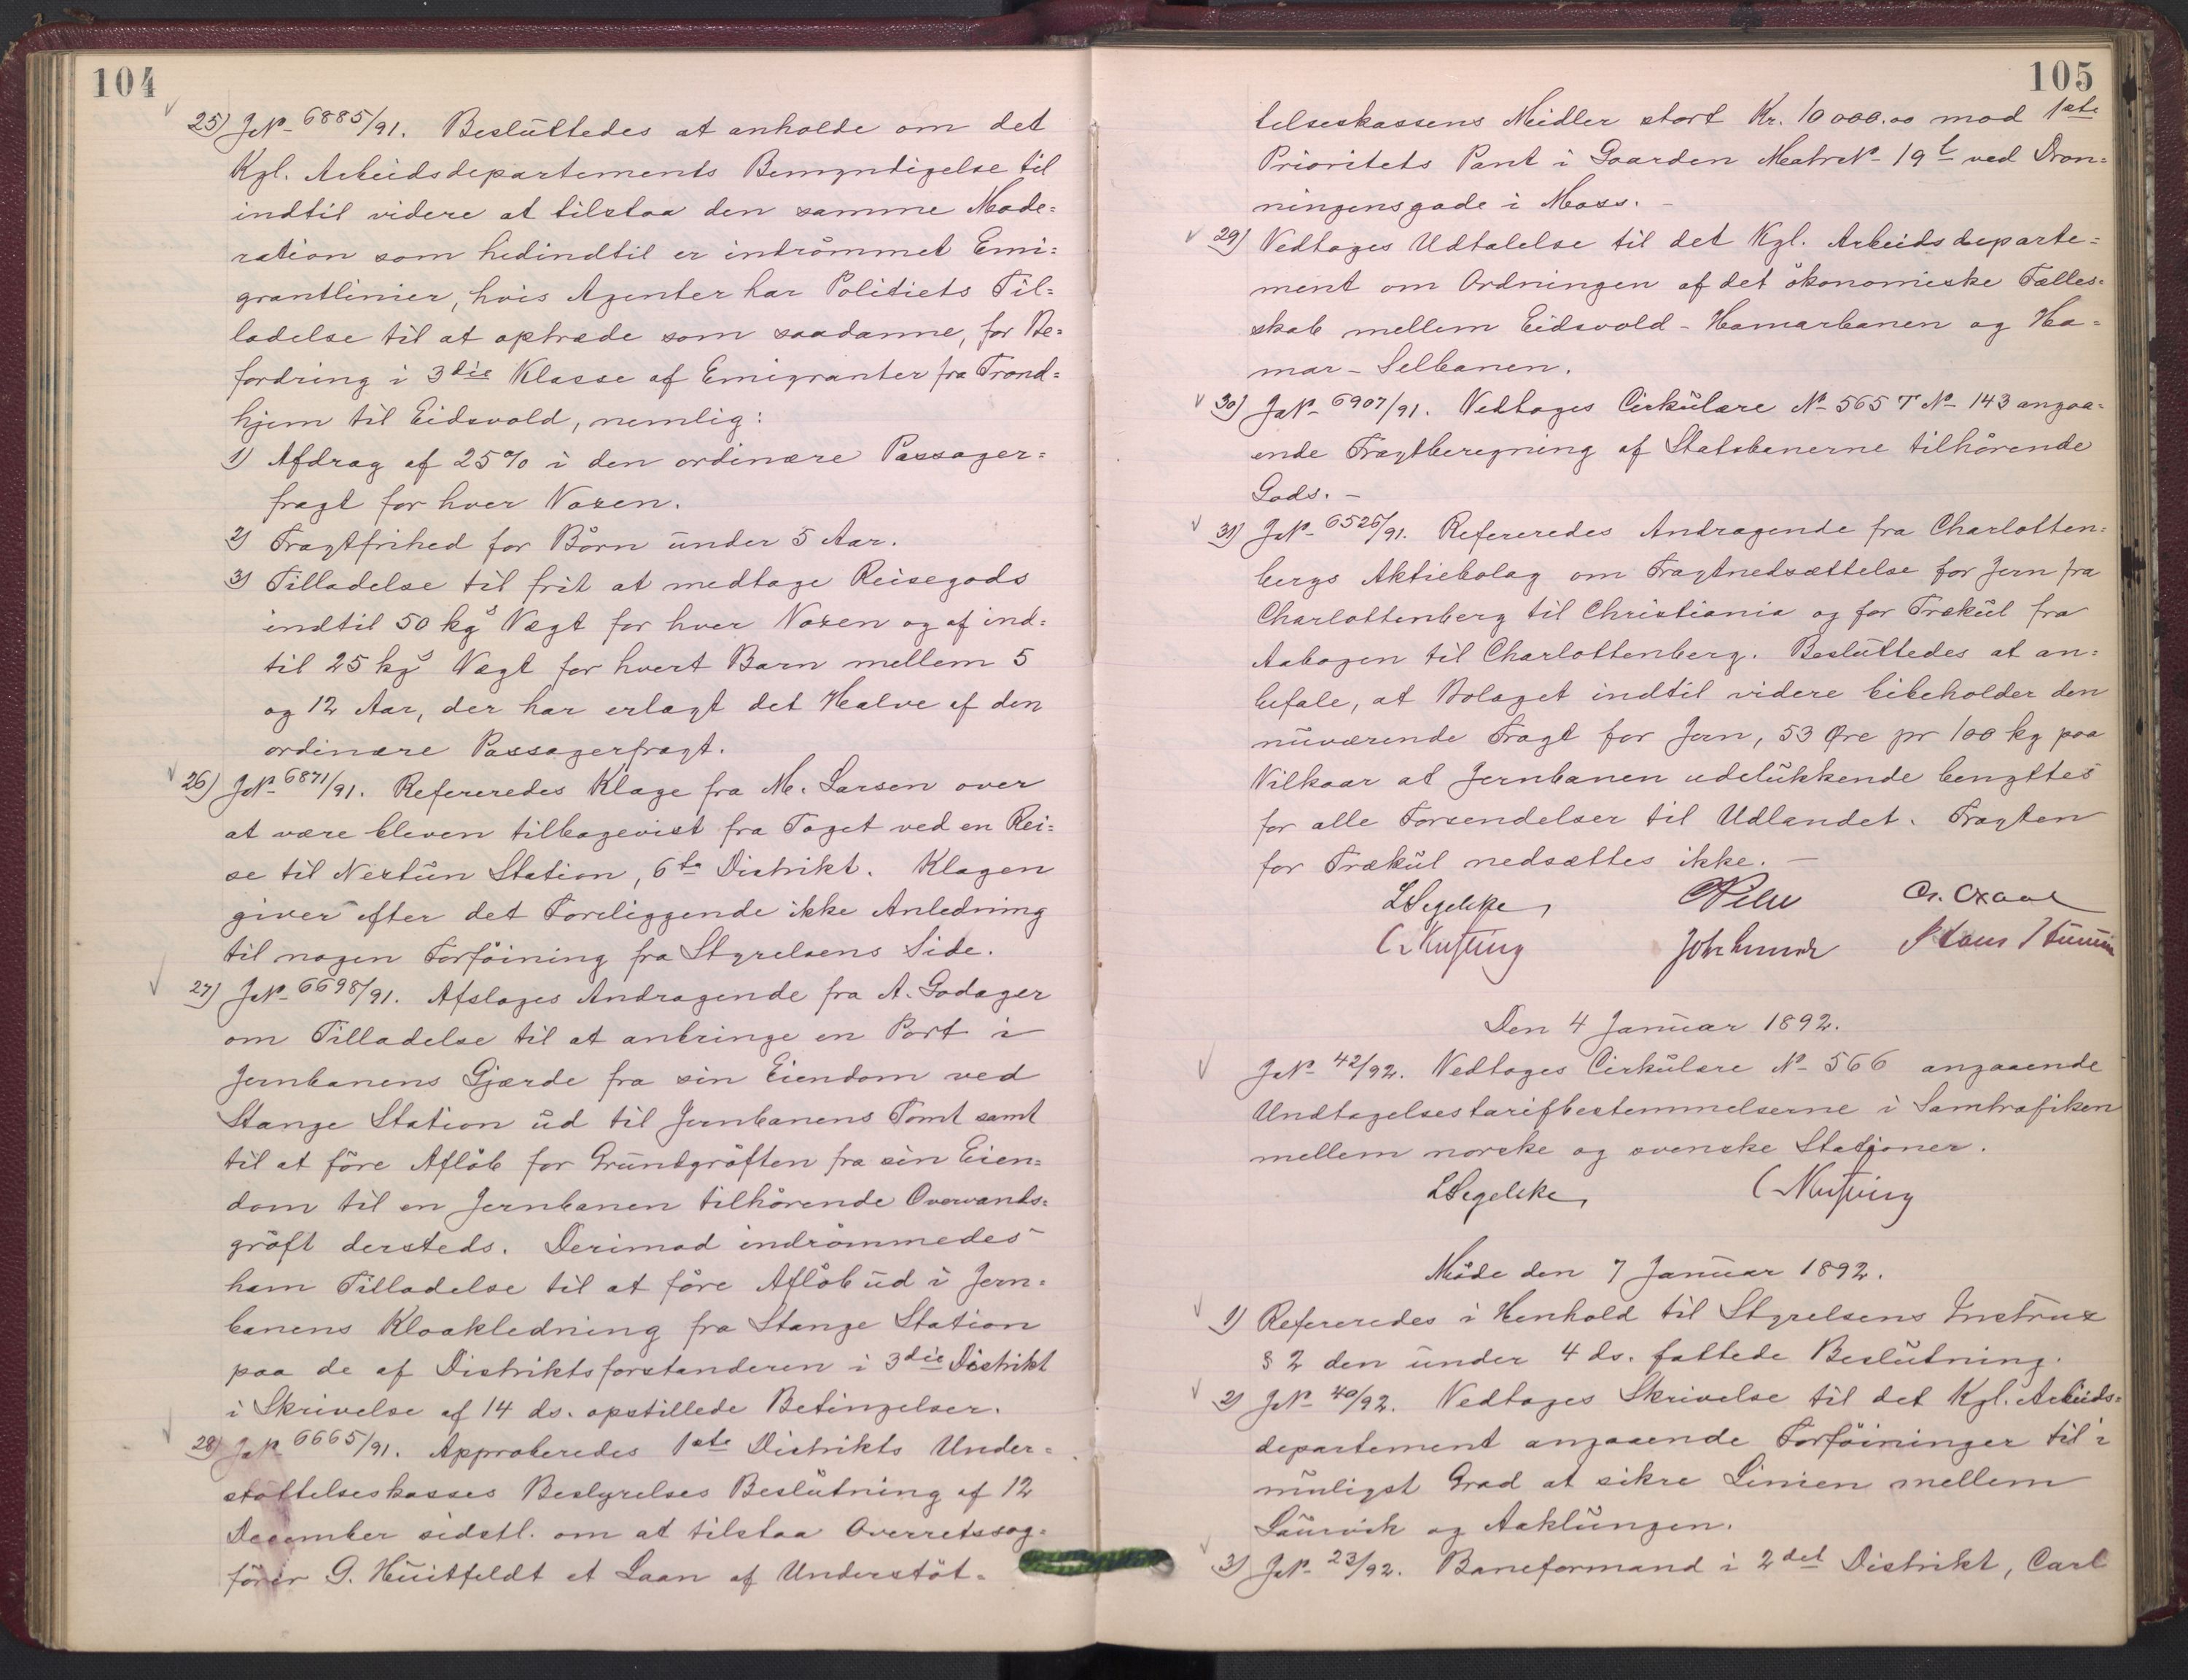 104
25) JN° 6885/91. Besluttedes at anholde om det
Kgl. Arbeidsdepartements Bemyndigelse til
indtil videre at tilstaa den samme Mode=
ration som hidindtil er indrømmet Emi=
grantlinier, hvis Agenter har Politiets Til=
ladelse til at optræde som saadanne, for Be=
fordring i 3die Klasse af Emigranter fra Trond=
hjem til Eidsvold, nemlig:
1) Afdrag af 25% i den ordinære Passager=
fragt for hver Voxen.
2) Fragtfrihed for Børn under 5 Aar.
3) Tilladelse til frit at medtage Reisegods
indtil 50 kgs Vægt for hver Voxen og af ind=
til 25 kgs Vægt for hvert Barn mellem 5
og 12 Aar, der har erlagt det Halve af den
ordinære Passagerfragt.
26) JN° 6871/91. Refereredes Klage fra M. Larsen over
at være bleven tilbagevist fra Toget ved en Rei=
se til Nestun Station, 6te Distrikt. Klagen
giver efter det Foreliggende ikke Anledning
til nogen Forføining fra Styrelsens Side.
27) JN° 6698/91. Afsloges Andragende fra A. Godager
om Tilladelse til at anbringe en Port i
Jernbanens Gjærde fra sin Eiendom ved
Stange Station ud til Jernbanens Tomt samt
til at føre Afløb for Grundgrøften fra sin Eien=
dom til en Jernbanen tilhørende Overvands=
grøft dersteds. Derimod indrømmedes
ham Tilladelse til at føre Afløb ud i Jern=
banens Kloakledning fra Stange Station
paa de af Distriktsforstanderen i 3die Distrikt
i Skrivelse af 14 ds. opstillede Betingelser.
28) JN° 6665/91. Approberedes 1ste Distrikts Under=
støttelseskasses Bestyrelses Beslutning af 12
December sidstl. om at tilstaa Overretssag=
fører G. Huitfeldt et Laan af Understøt=
105
telseskassens Midler stort Kr. 10 000.00 mod 1ste
Prioritets Pant i Gaarden MatrN° 19 t ved Dron=
ningensgade i Moss. –
29) Vedtoges Udtalelse til det Kgl. Arbeidsdeparte=
ment om Ordningen af det økonomiske Fælles=
skab mellem Eidsvold-Hamarbanen og Ha=
mar-Selbanen.
30) JN° 6907/91. Vedtoges Cirkulære N° 565 T N° 143 angaa=
ende Fragtberegning af Statsbanerne tilhørende
Gods. –
31) JN° 6526/91. Refereredes Andragende fra Charlotten=
bergs Aktiebolag om Fragtnedsættelse for Jern fra
Charlottenberg til Christiania og for Trækul fra
Aabogen til Charlottenberg. Besluttedes at an=
befale, at Bolaget indtil videre bibeholder den
nuværende Fragt for Jern, 53 Øre pr 100 kg paa
Vilkaar at Jernbanen udelukkende benyttes
for alle Forsendelser til Udlandet. Fragten
for Trækul nedsættes ikke. –
LSegelcke,
Den 4 Januar 1892.
JN° 42/92. Vedtoges Cirkulære N° 566 angaaende
Undtagelsestarifbestemmelserne i Samtrafiken
mellem norske og svenske Stationer.
LSegelcke,
Møde den 7 Januar 1892.
1) Refereredes i Henhold til Styrelsens Instrux
§ 2 den under 4 ds. fattede Beslutning.
2) JN° 40/92. Vedtoges Skrivelse til det Kgl. Arbeids=
departement angaaende Forføininger til i
muligst Grad at sikre Linien mellem
Laurvik og Aaklungen.
3) JN° 23/92. Baneformand i 2det Distrikt, Carl